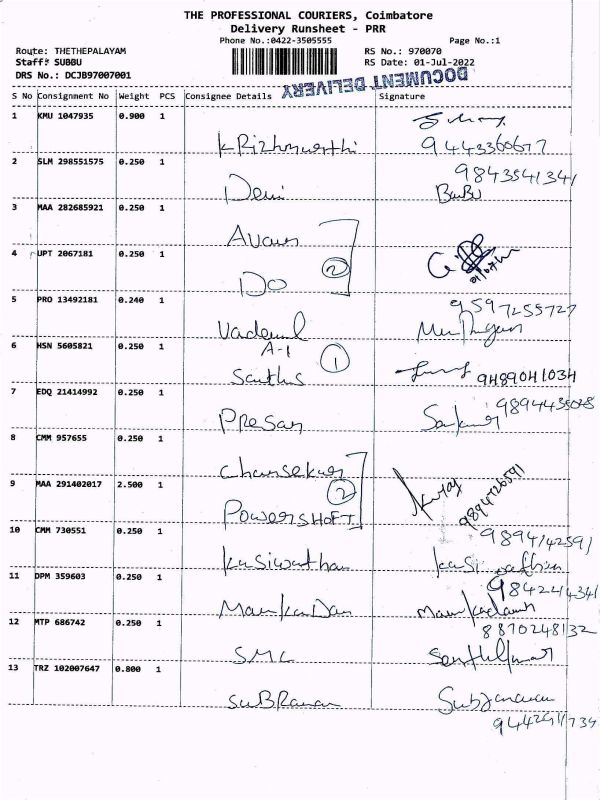 THE PROFESSIONAL COURIERS, Coimbatore
Delivery Runsheet - PRR
Phone No.:0422-3505555 Page No.:1
Route: THETHEPALAYAM RS No.: 970070
Staff: SUBBU RS Date: 01-Jul-2022
DRS No.: DCJB97007001
DOCUMENT DELIVERY
S No Consignment No Weight PCS Consignee Details Signature
1 KMU 1047935 0.900 1
9443360677
2 SLM 298551575 0.250 1 9843541341
Devi Babu
3 MAA 282685921 0.250 1
4 UPT 2067181 0.250 1 2
DO
5 PRO 13492181 0.240 1 9597255727
Murugan
6 HSN 5605821 0.250 1 A-1 1
9489041034
7 EDQ 21414992 0.250 1 9894435028
Presan
8 CMM 957655 0.250 1
9 MAA 291402017 2.500 1 2 9894726591
POWERSHOFT
10 CMM 730551 0.250 1 9894142591
Kasiwathan
11 DPM 359603 0.250 1 9842244341
12 MTP 686742 0.250 1 8870248132
SMC Senthilkumar
13 TRZ 102007647 0.800 1